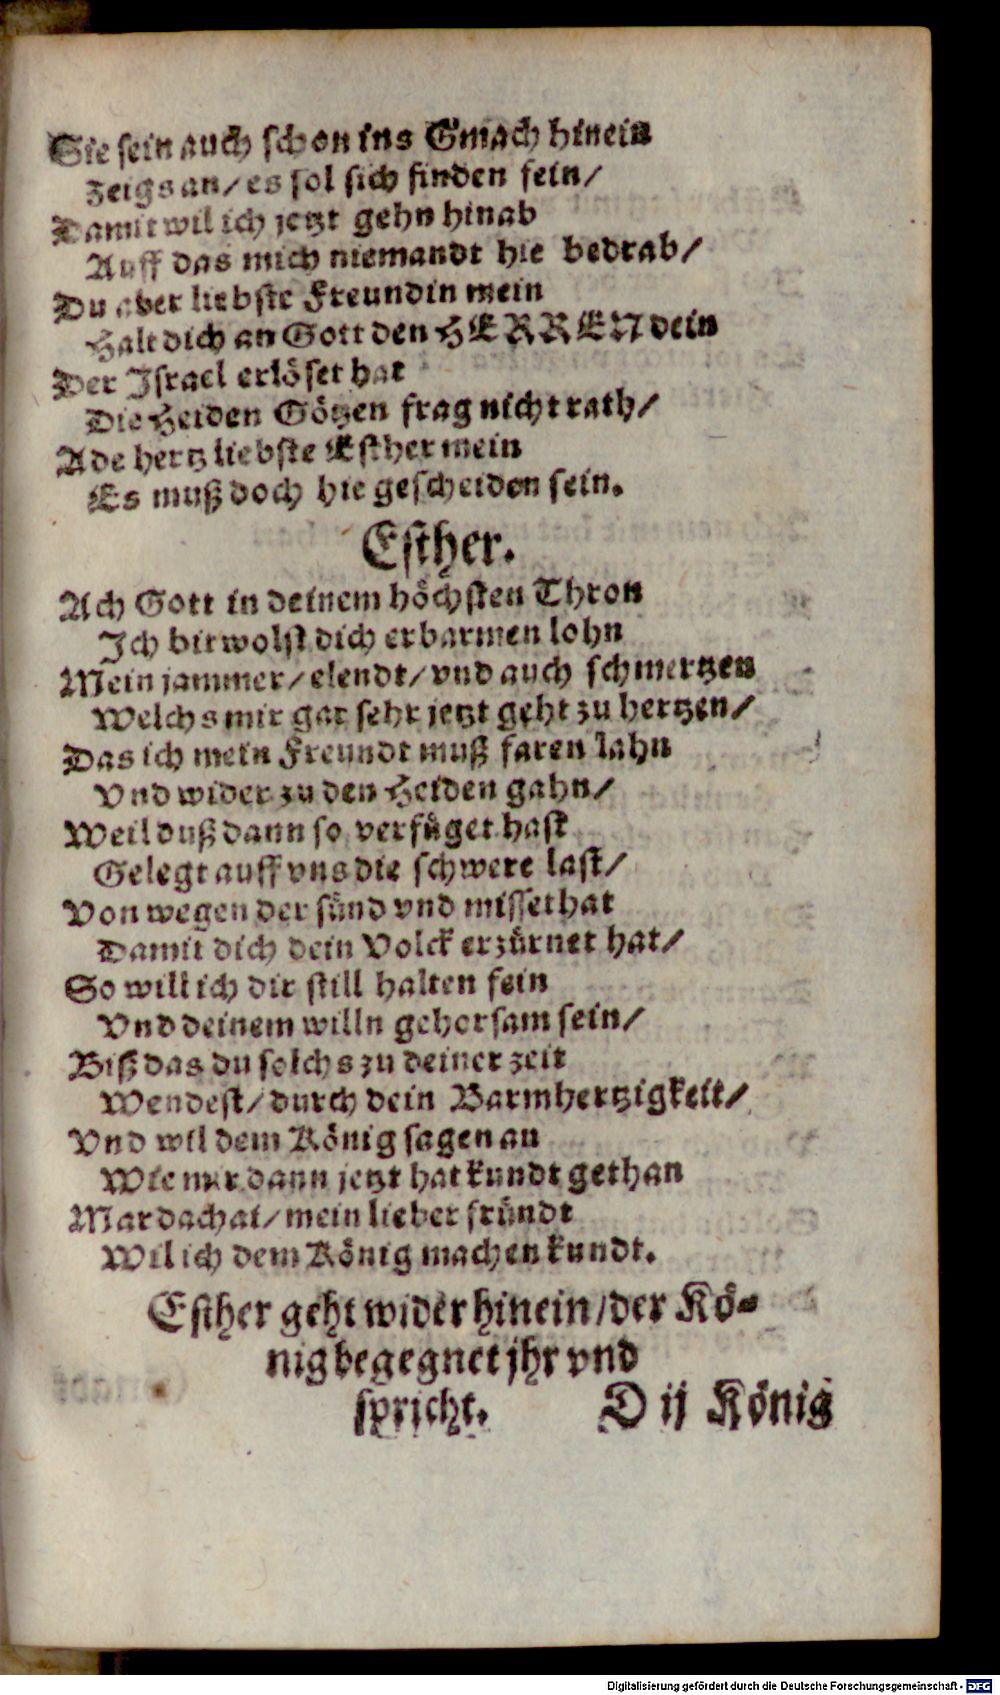 Sie sein auch schon ins Gmach hinein
Zeigs an/ es sol sich finden fein/
Damit wil ich jetzt gehn hinab
Auff das mich niemandt hie bedrab/
Du aber liebste Freundin mein
Halt dich an Gott den HERREN dein
Der Israel erlöset hat
Die Heiden Götzen frag nicht rath/
Ade hertz liebste Esther mein
Es muß doch hie gescheiden sein.
Esther.
Ach Gott in deinem höchsten Thron
Ich bit wolst dich erbarmen lohn
Mein jammer/ elendt/ vnd auch schmertzen
Welchs mir gar sehr jetzt geht zu hertzen/
Das ich mein Freundt muß faren lahn
Vnd wider zu den Heiden gahn/
Weil duß dann so verfüget hast
Gelegt auff vns die schwere last/
Von wegen der sünd vnd missethat
Damit dich dein Volck erzürnet hat/
So will ich dir still halten fein
Vnd deinem willn gehorsam sein/
Biß das du solchs zu deiner zeit
Wendest/ durch dein Barmhertzigkeit/
Vnd wil dem König sagen an
Wie mir dann jetzt hat kundt gethan
Mardachai/ mein lieber fründt
Wil ich dem König machen kundt.
Esther geht wider hinein/ der Kö-
nig begegnet jhr vnd
spricht. D ij König
Digitalisierung gefördert durch die Deutsche Forschungsgemeinschaft - DFG